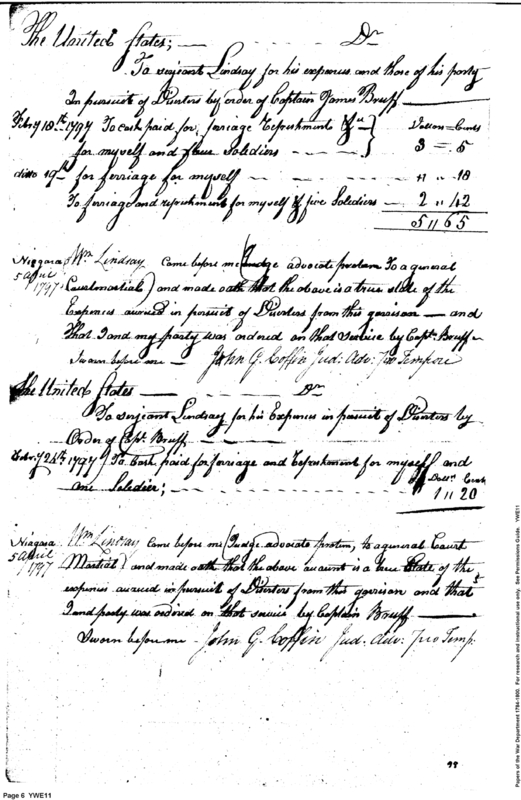 The United States; — — — Dr
To serjeant Lindsay for his expences and those of his party
In pursuit of Diserters by order of Captain James Bruff —
Febry 18th 1797 To cash paid for ferriage & refreshment Dollars - Cents
for myself and four Soldiers — 3 = 5
ditto 19th for ferriage for myself — " " .18
To ferriage and refreshment for myself & five Soldiers — 2 " 42
5 " 65
Niagara 5 April 1797
Wm Lindsay Came before me (Judge advocate protem To a general
Courtmartial) and made oath that the above is a true state of the
Expences accrued in pursuit of Diserters from this garison — and
That I and my party was ordered on that service by Capt. Bruff —
Sworn before me — John G. Coffin Jud: Adv: Pro Tempore
The United States — — — Dr
To serjeant Lindsay for his Expences in pursuit of Diserters by
Order of Capt. Bruff —
Febry 24th 1797 To Cash paid for ferriage and refreshment for myself and
one Soldier; — Dolls Cents
1 " 20
Niagara 5 April 1797
Wm Lindsay Came before me (Judge advocate protem, to a general Court
Martial) and made oath that the above account is a true State of the
expences accrued in pursuit of Diserters from this garison and that
I and party was ordered on that service by Captain Bruff —
Sworn before me - John G. Coffin Jud: Adv: Pro Temp:
Page 6 YWE11
Papers of the War Department 1784-1800. For research and instructional use only. See Permissions Guide. YWE11